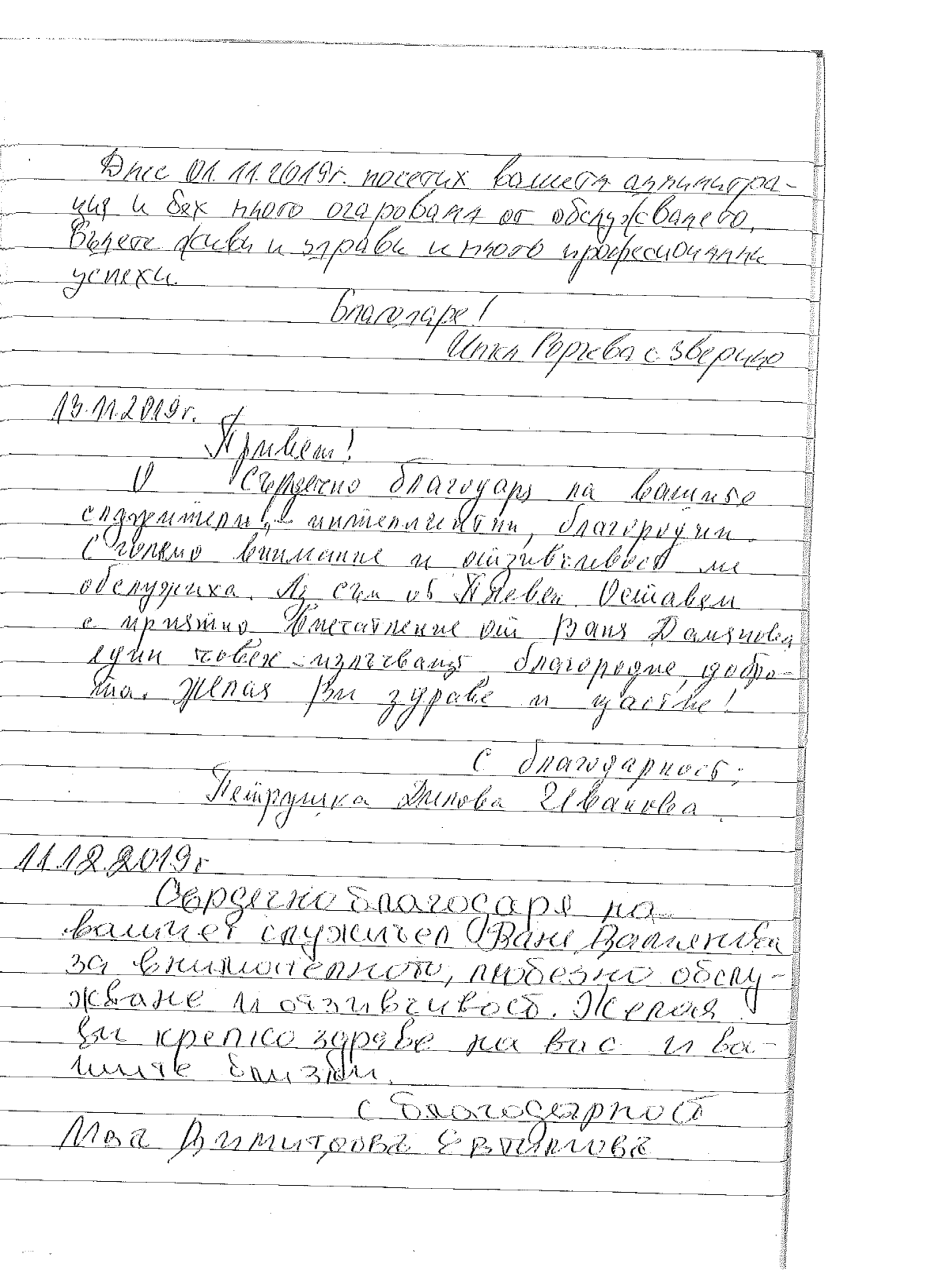 Днес 01.11.2019г. посетих вашета администра-
ция и бях много очарована от обслужването.
Бъдете живи и здрави и много професионални
успехи.
Благодаря!
с. Зверино
13.11.2019г.
Привет!
Сърдечно благодаря на вашите
служители - интелигентни, благородни.
С голямо внимание и отзивчивост ме
обслужиха. Аз съм от Плевен. Оставам
с приятно впечатление от Ваня Дамянова
един човек излъчващ благородие, добро-
та. Желая Ви здраве и щастие!
С благодарност:
Петрушка Динова Иванова
11.12.2019г
Сърдечно благодаря на
вашиет служител Ваня
за внимателното, любезно обслу-
жване и отзивчивост. Желая
ви крепко здраве на вас и ва-
шите близки.
с благодарност
Димитрова